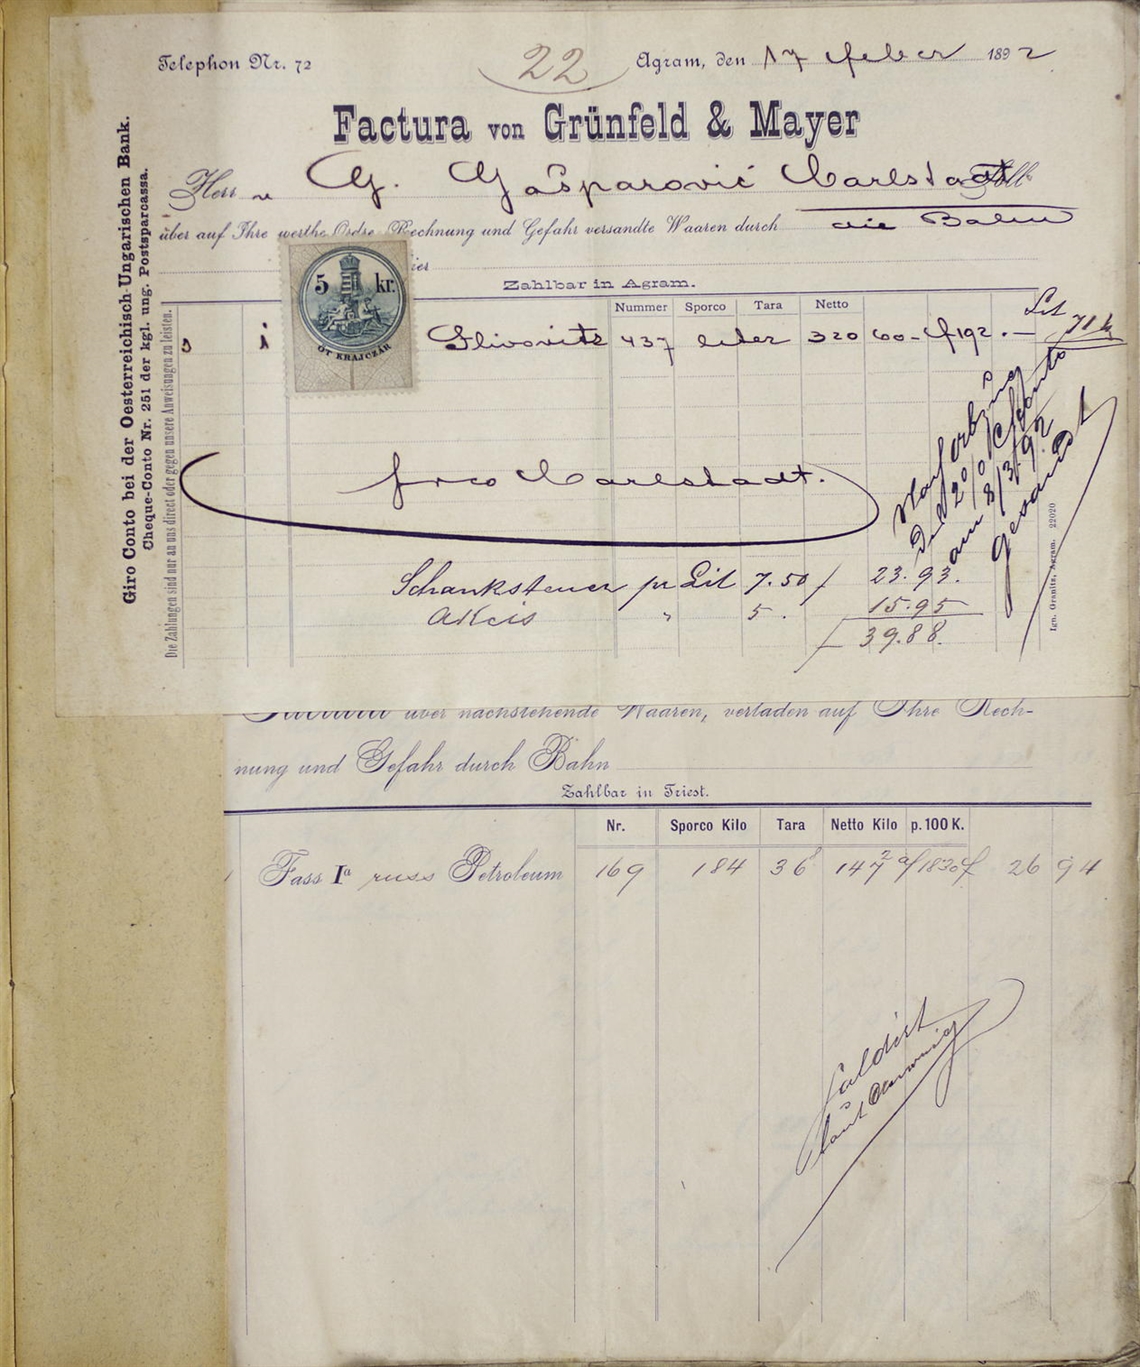 Telephon Nr. 72
22
Agram, den 17 feber 1892
Factura von Grünfeld & Mayer
Herrn G. Gašparović Carlstadt
über auf Ihre werthe Ordre, Rechnung und Gefahr versandte Waaren durch die Bahn
Zahlbar in Agram.
Nummer Sporco Tara Netto
Slivovitz 437 liter 320 60 - f 192. —
5 kr.
ÖT KRAJCZÁR
frco Carlstadt.
Schanksteuer pr Lit 7.50 f 23.93.
Akcis " 5. 15.95
f 39.88.
den 2% Sconto
am 8/3/92
gesandt
Giro Conto bei der Oesterreichisch-Ungarischen Bank.
Cheque-Conto Nr. 251 der kgl. ung. Postsparcassa.
Die Zahlungen sind nur an uns direct oder gegen unsere Anweisungen zu leisten.
Ign. Granitz, Agram. 22020
Factura über nachstehende Waaren, verladen auf Ihre Rech-
nung und Gefahr durch Bahn
Zahlbar in Triest.
Nr. Sporco Kilo Tara Netto Kilo p. 100 K.
Fass Iª russ Petroleum 169 184 36 147 f 1830 f 26 94
saldirt
laut